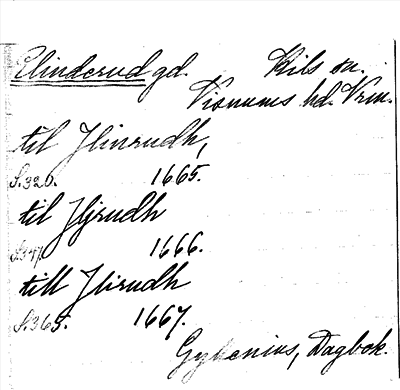 Elinderud gd. Kils sn.
Visnums hd. Vrm.
til Jlinrudh,
S. 320. 1665.
til Jljrudh
S. 347. 1666.
till Jlirudh
S. 365. 1667.
Gyllenius, Dagbok.